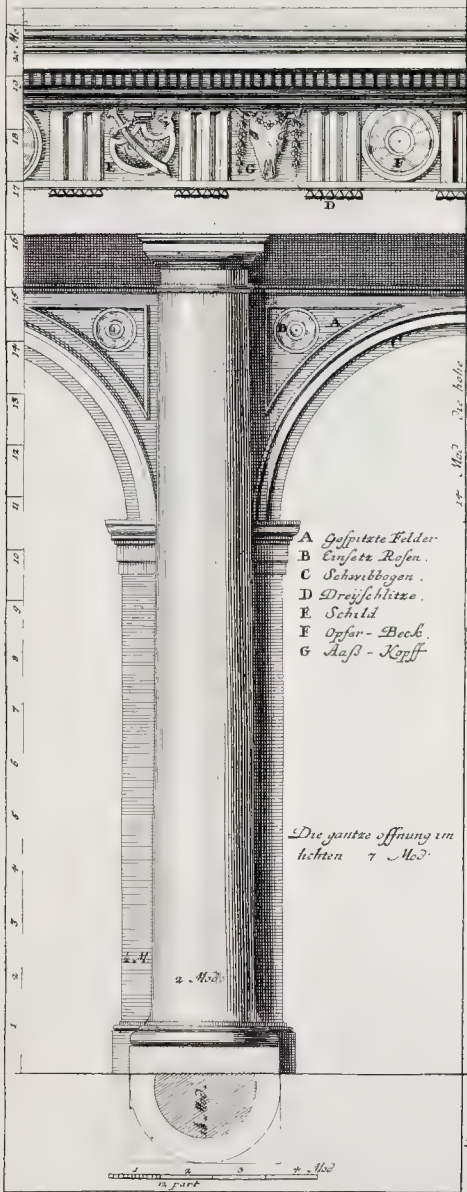 20 Mod
19
18
17
16
15
14
13
12
11
10
9
8
7
6
5
4
3
2
1
E
G
F
D
B
A
C
14 Mod die höhe
A Gespitzte Felder
B Einsetz Rosen.
C Schwibbogen.
D Dreÿschlitze.
E Schild
F Opfer-Beck.
G Aaß-Kopff
Die gantze offnung im
lichten 7 Mod.
½ M.
2 Mod.
1 2 3 4 Mod
12 part